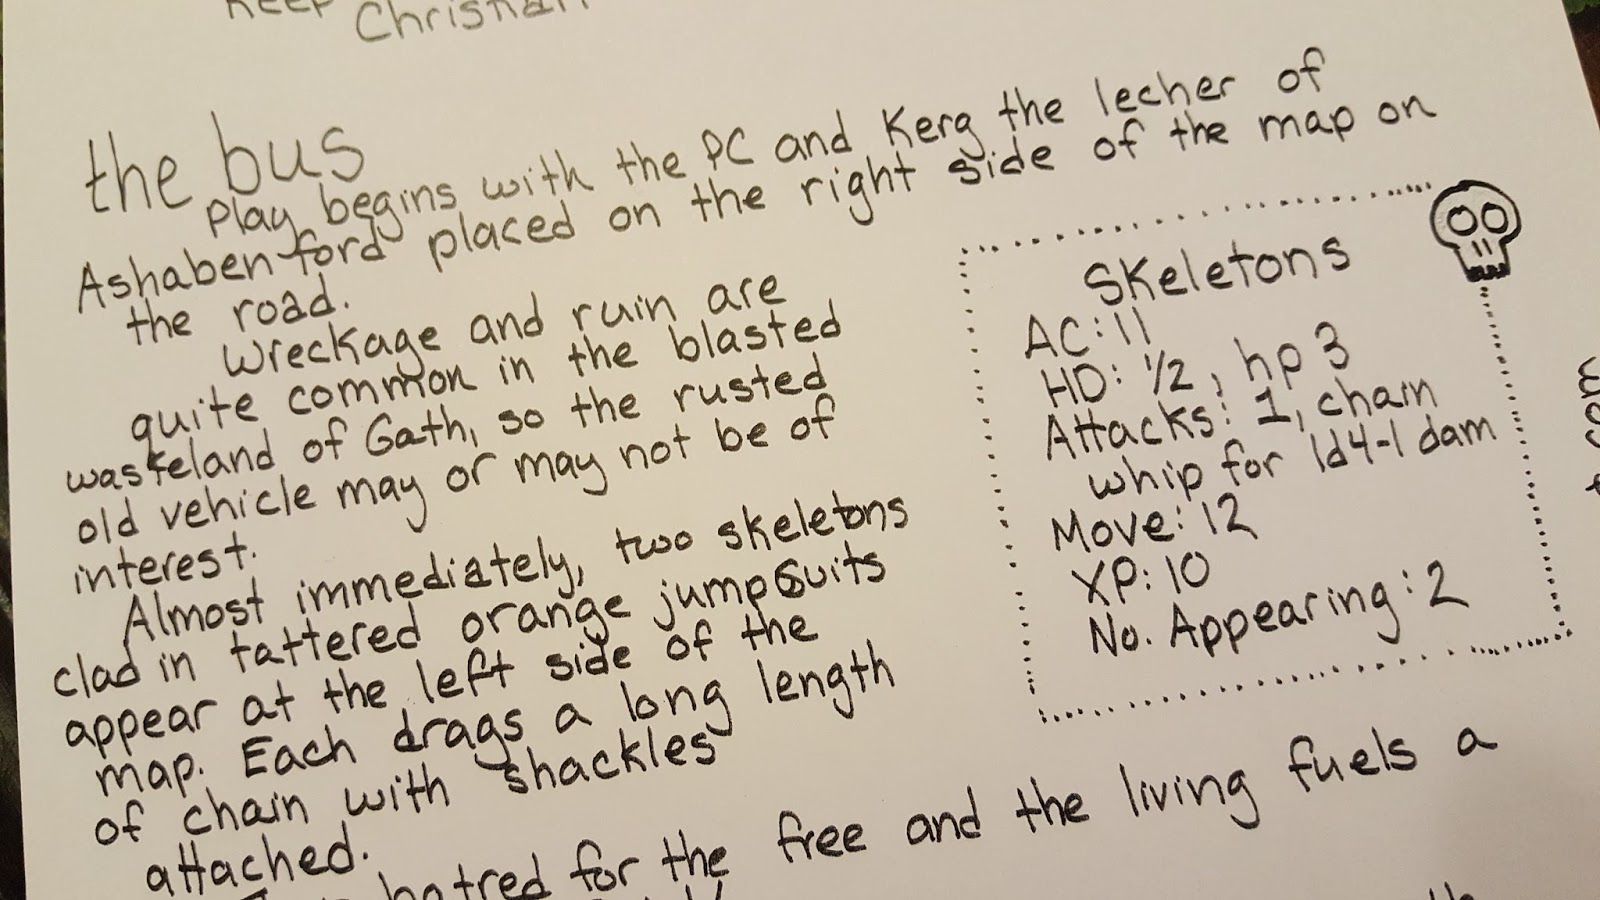 Keep
Christian
the bus
Play begins with the PC and Kerg the lecher of
Ashabenford placed on the right side of the map on
the road.
Wreckage and ruin are
quite common in the blasted
wasteland of Gath, so the rusted
old vehicle may or may not be of
interest.
Almost immediately, two skeletons
clad in tattered orange jumpsuits
appear at the left side of the
map. Each drags a long length
of chain with shackles
attached.
Skeletons
AC: 11
HD: 1/2, hp 3
Attacks: 1, chain
whip for 1d4-1 dam
Move: 12
XP: 10
No. Appearing: 2
hatred for the free and the living fuels a